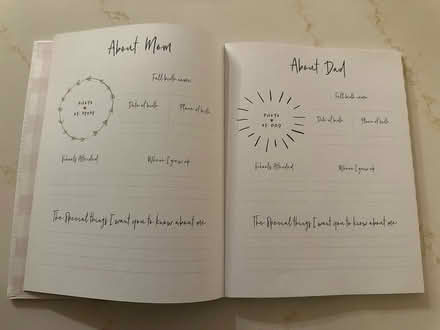 About Mom
Full birth name
PHOTO
OF MOM
Date of birth
Place of birth
Schools Attended
Where I grew up
The special things I want you to know about me
About Dad
Full birth name
PHOTO
OF DAD
Date of birth
Place of birth
Schools Attended
Where I grew up
The special things I want you to know about me